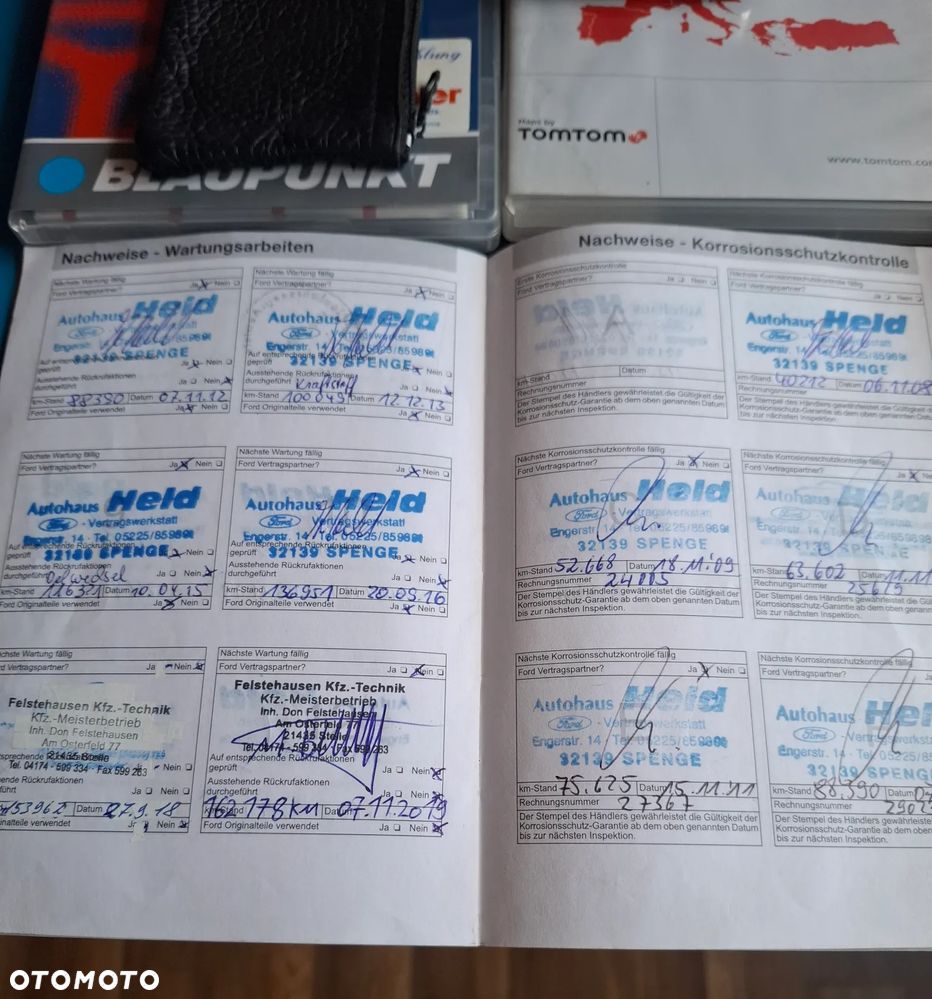 BLAUPUNKT
Maps by
TOMTOM
www.tomtom.com
Nachweise - Wartungsarbeiten
Nächste Wartung fällig
Ford Vertragspartner? Ja Nein
Autohaus Held
Ford
Engerstr. 14
32139 SPENGE
geprüft
Ausstehende Rückrufaktionen
durchgeführt Ja Nein
km-Stand 88390 Datum 07.11.12
Ford Originalteile verwendet Ja Nein
Nächste Wartung fällig
Ford Vertragspartner? Ja Nein
Autohaus Held
Ford
Engerstr. 14 Tel.
32139 SPENGE
geprüft
Ausstehende Rückrufaktionen
durchgeführt Kraftstoff Ja Nein
km-Stand 100049 Datum 12.12.13
Ford Originalteile verwendet Ja Nein
Nächste Wartung fällig
Ford Vertragspartner? Ja Nein
Autohaus Held
Ford - Vertragswerkstatt
Engerstr. 14 - Tel. 05225/859898
Auf entsprechende Rückrufaktionen
geprüft 32139 SPENGE Nein
Ausstehende Rückrufaktionen
durchgeführt Oelwechsel Ja Nein
km-Stand 116321 Datum 10.04.15
Ford Originalteile verwendet Ja Nein
Nächste Wartung fällig
Ford Vertragspartner? Ja Nein
Autohaus Held
Ford Vertragswerkstatt
Engerstr. 14 - Tel. 05225/859898
Auf entsprechende Rückrufaktionen
geprüft 32139 SPENGE Nein
Ausstehende Rückrufaktionen
durchgeführt Ja Nein
km-Stand 136951 Datum 20.09.16
Ford Originalteile verwendet Ja Nein
Nächste Wartung fällig
Ford Vertragspartner? Ja Nein
Felstehausen Kfz.-Technik
Kfz.-Meisterbetrieb
Inh. Don Felstehausen
Am Osterfeld 77
21435 Stelle
Tel. 04174 - 599 334 - Fax 599 263
Nein
Rückrufaktionen
Ja Nein
153962 Datum 27.9.18
verwendet Nein
Nächste Wartung fällig
Ford Vertragspartner? Ja Nein
Felstehausen Kfz.-Technik
Kfz.-Meisterbetrieb
Inh. Don Felstehausen
Am Osterfeld
21435 Stelle
Tel. 04174 - 599 334 / Fax 599 263
Auf entsprechende Rückrufaktionen
geprüft Ja Nein
Ausstehende Rückrufaktionen
durchgeführt Ja Nein
162178KM Datum 07.11.2019
Ford Originalteile verwendet Ja Nein
Nachweise - Korrosionsschutzkontrolle
Erste Korrosionsschutzkontrolle
Ford Vertragspartner? Ja Nein
km-Stand Datum
Rechnungsnummer
Der Stempel des Händlers gewährleistet die Gültigkeit der
Korrosionsschutz-Garantie ab dem oben genannten Datum
bis zur nächsten Inspektion.
Nächste Korrosionsschutzkontrolle fällig
Ford Vertragspartner? Ja Nein
Autohaus Held
Ford
Engerstr. 14
32139 SPENGE
km-Stand 40212 Datum 06.11.08
Rechnungsnummer
Der Stempel des Händlers gewährleistet die Gültigkeit der
Korrosionsschutz-Garantie ab dem oben genannten Datum
bis zur nächsten Inspektion.
Nächste Korrosionsschutzkontrolle fällig
Ford Vertragspartner? Ja Nein
Autohaus Held
Ford Vertragswerkstatt
Engerstr. 14 Tel. 05225/859898
32139 SPENGE
km-Stand 52.668 Datum 18.11.09
Rechnungsnummer 24005
Der Stempel des Händlers gewährleistet die Gültigkeit der
Korrosionsschutz-Garantie ab dem oben genannten Datum
bis zur nächsten Inspektion.
Nächste Korrosionsschutzkontrolle fällig
Ford Vertragspartner? Ja
Autohaus Held
Ford
Engerstr. 14
32139 SPENGE
km-Stand 63.602 Datum 11.11
Rechnungsnummer 25615
Der Stempel des Händlers gewährleistet die
Korrosionsschutz-Garantie ab dem oben
bis zur nächsten Inspektion.
Nächste Korrosionsschutzkontrolle fällig
Ford Vertragspartner? Ja Nein
Autohaus Held
Ford
Engerstr. 14
32139 SPENGE
km-Stand 75.625 Datum 15.11.11
Rechnungsnummer 27367
Der Stempel des Händlers gewährleistet die Gültigkeit der
Korrosionsschutz-Garantie ab dem oben genannten Datum
bis zur nächsten Inspektion.
Nächste Korrosionsschutzkontrolle fällig
Ford Vertragspartner?
Autohaus
Ford
Engerstr. 14
32139 SPENGE
km-Stand 88.390 Datum
Rechnungsnummer
Der Stempel des Händlers gewährleistet
Korrosionsschutz-Garantie ab dem
bis zur nächsten Inspektion.
OTOMOTO